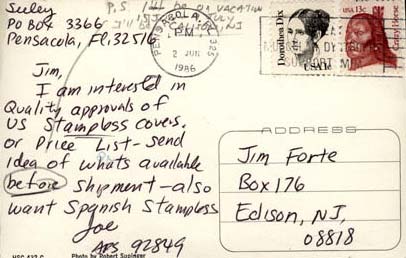 Suley
PO Box 3366
Pensacola, Fl. 32516
P.S. I'll be on vacation
PENSACOLA, FL 325
PM
2 JUN
1986
Dorothea Dix
USA 1c
USA 13c
Crazy Horse
SUPPORT
Jim,
I am interested in
Quality approvals of
US Stampless covers.
or Price List-send
idea of whats available
before shipment-also
want Spanish Stampless
Joe
APS 92849
ADDRESS
Jim Forte
Box 176
Edison, NJ,
08818
Photo by Robert Supinger